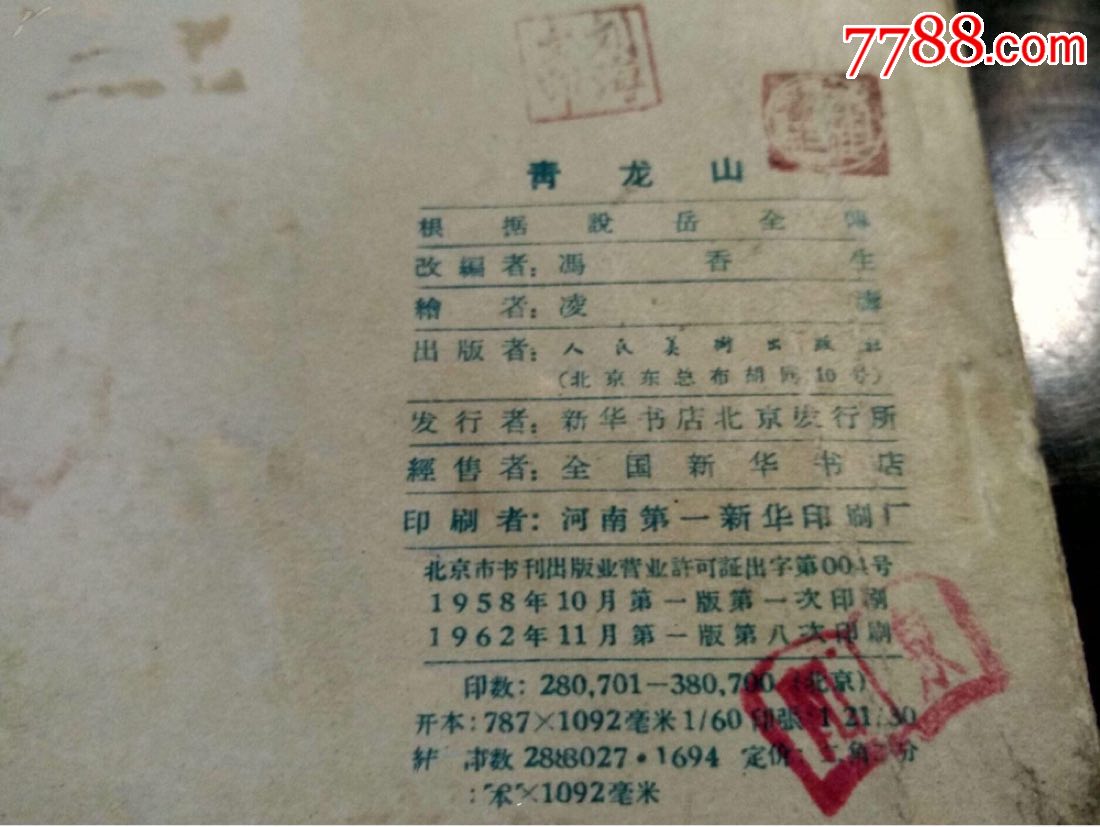 7788.com
青龙山
根据說岳全傳
改編者：馮香生
繪者：凌濤
出版者：人民美術出版社
（北京东总布胡同10号）
发行者：新华书店北京发行所
經售者：全国新华书店
印刷者：河南第一新华印刷厂
北京市书刊出版业营业許可証出字第004号
1958年10月第一版第一次印刷
1962年11月第一版第八次印刷
印数：280,701—380,700（北京）
开本：787×1092毫米1/60 印張：1 21/30
书数 288027·1694 定价： 角 分
×1092毫米